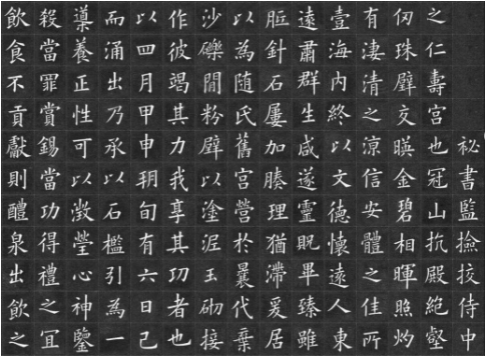 祕書監撿挍侍中
之仁壽宮也冠山抗殿絶壑
仞珠璧交暎金碧相暉照灼
有淒清之涼信安體之佳所
壹海內終以文德懷遠人東
遠肅群生咸遂靈貺畢臻雖
胝針石屢加腠理猶滯爰居
以為随氏舊宮營於曩代棄
沙礫閒粉壁以塗泥玉砌接
作彼竭其力我享其功者也
以四月甲申朔旬有六日己
而涌出乃承以石檻引為一
導養正性可以澂瑩心神鑒
殺當罪賞錫當功得禮之宜
飲食不貢獻則醴泉出飲之